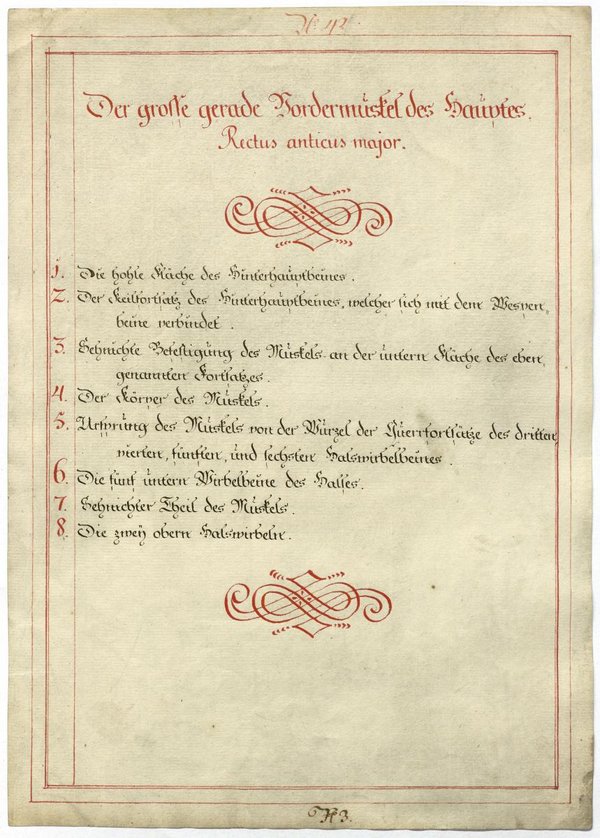 Nº 42.
Der grosse gerade Vordermuskel des Hauptes.
Rectus anticus major.
1. Die hohle Fläche des Hinterhauptbeines.
2. Der Keilfortsatz des Hinterhauptbeines, welcher sich mit dem Wespen,
beine verbindet.
3. Sehnichte Befestigung des Muskels an der untern Fläche des eben,
genannten Fortsatzes.
4. Der Körper des Muskels.
5. Ursprung des Muskels von der Wurzel der Querrfortsätze des dritten,
vierten, fünften, und sechsten Halswirbelbeines.
6. Die fünf untern Wirbelbeine des Halses.
7. Sehnichter Theil des Muskels.
8. Die zweÿ obern Halswirbeln.